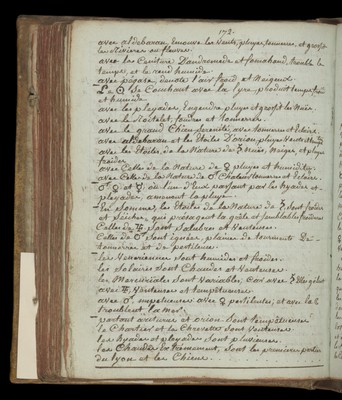 172.
avec aldebaran, Emouve les Vents, pluyes, tonnerres, et grossit
les Rivieres ou fleuves.
avec la Ceinture Dandromede et fomahand, trouble le
temps, et le rend humide.
avec pegase, denote l'air froid et Nuageux.
La ☿ Se Couchant avec la lyre, produit temps froid
et humide.
avec les pleyades, Engendre pluye et grossit les Nuës.
avec le Roitelet, foudres et tonnerres.
avec le grand Chien Serenité, avec tonnerres et Eclairs.
avec aldebaran et les Etoiles D'orion, pluyes Vents
avec les Etoiles de la Nature de ♄ Nuës, Neiges, et pluye
froides.
avec Celles de la Nature de ♀ pluyes et humidités.
avec Celles de la Nature de ♂ Chaleur tonnerres et Eclairs.
♂ ☿ et ♀, ou l'un d'Eux passant par les hyades et
pleyades, amenent la pluye.
En Somme, les Etoiles de la Nature de ♄ Sont froides
et Seiches, qui presagent la gelée et Semblables froidures
Celles de ♃ Sont Salubres et Venteuses.
Celles de ♂ Sont ignées, pleines de tourments De
tonnerres et de
les Veneriennes Sont humides et froides.
les Solaires Sont Chaudes et Venteuses.
les Mercuriales Sont Variables, Car avec ♄
avec ♃, Venteuses et tempestueuses.
avec ♂ impetueuses avec ♀ pestilentes, et avec la ☾
troublent la mer.
partant arcturus et orion Sont tempetueuses.
le Chartier et les Chevrettes Sont Venteuses.
les hyades et pleyades Sont pluvieuses.
les Sont les premieres parties
du lyon et les Chiens.